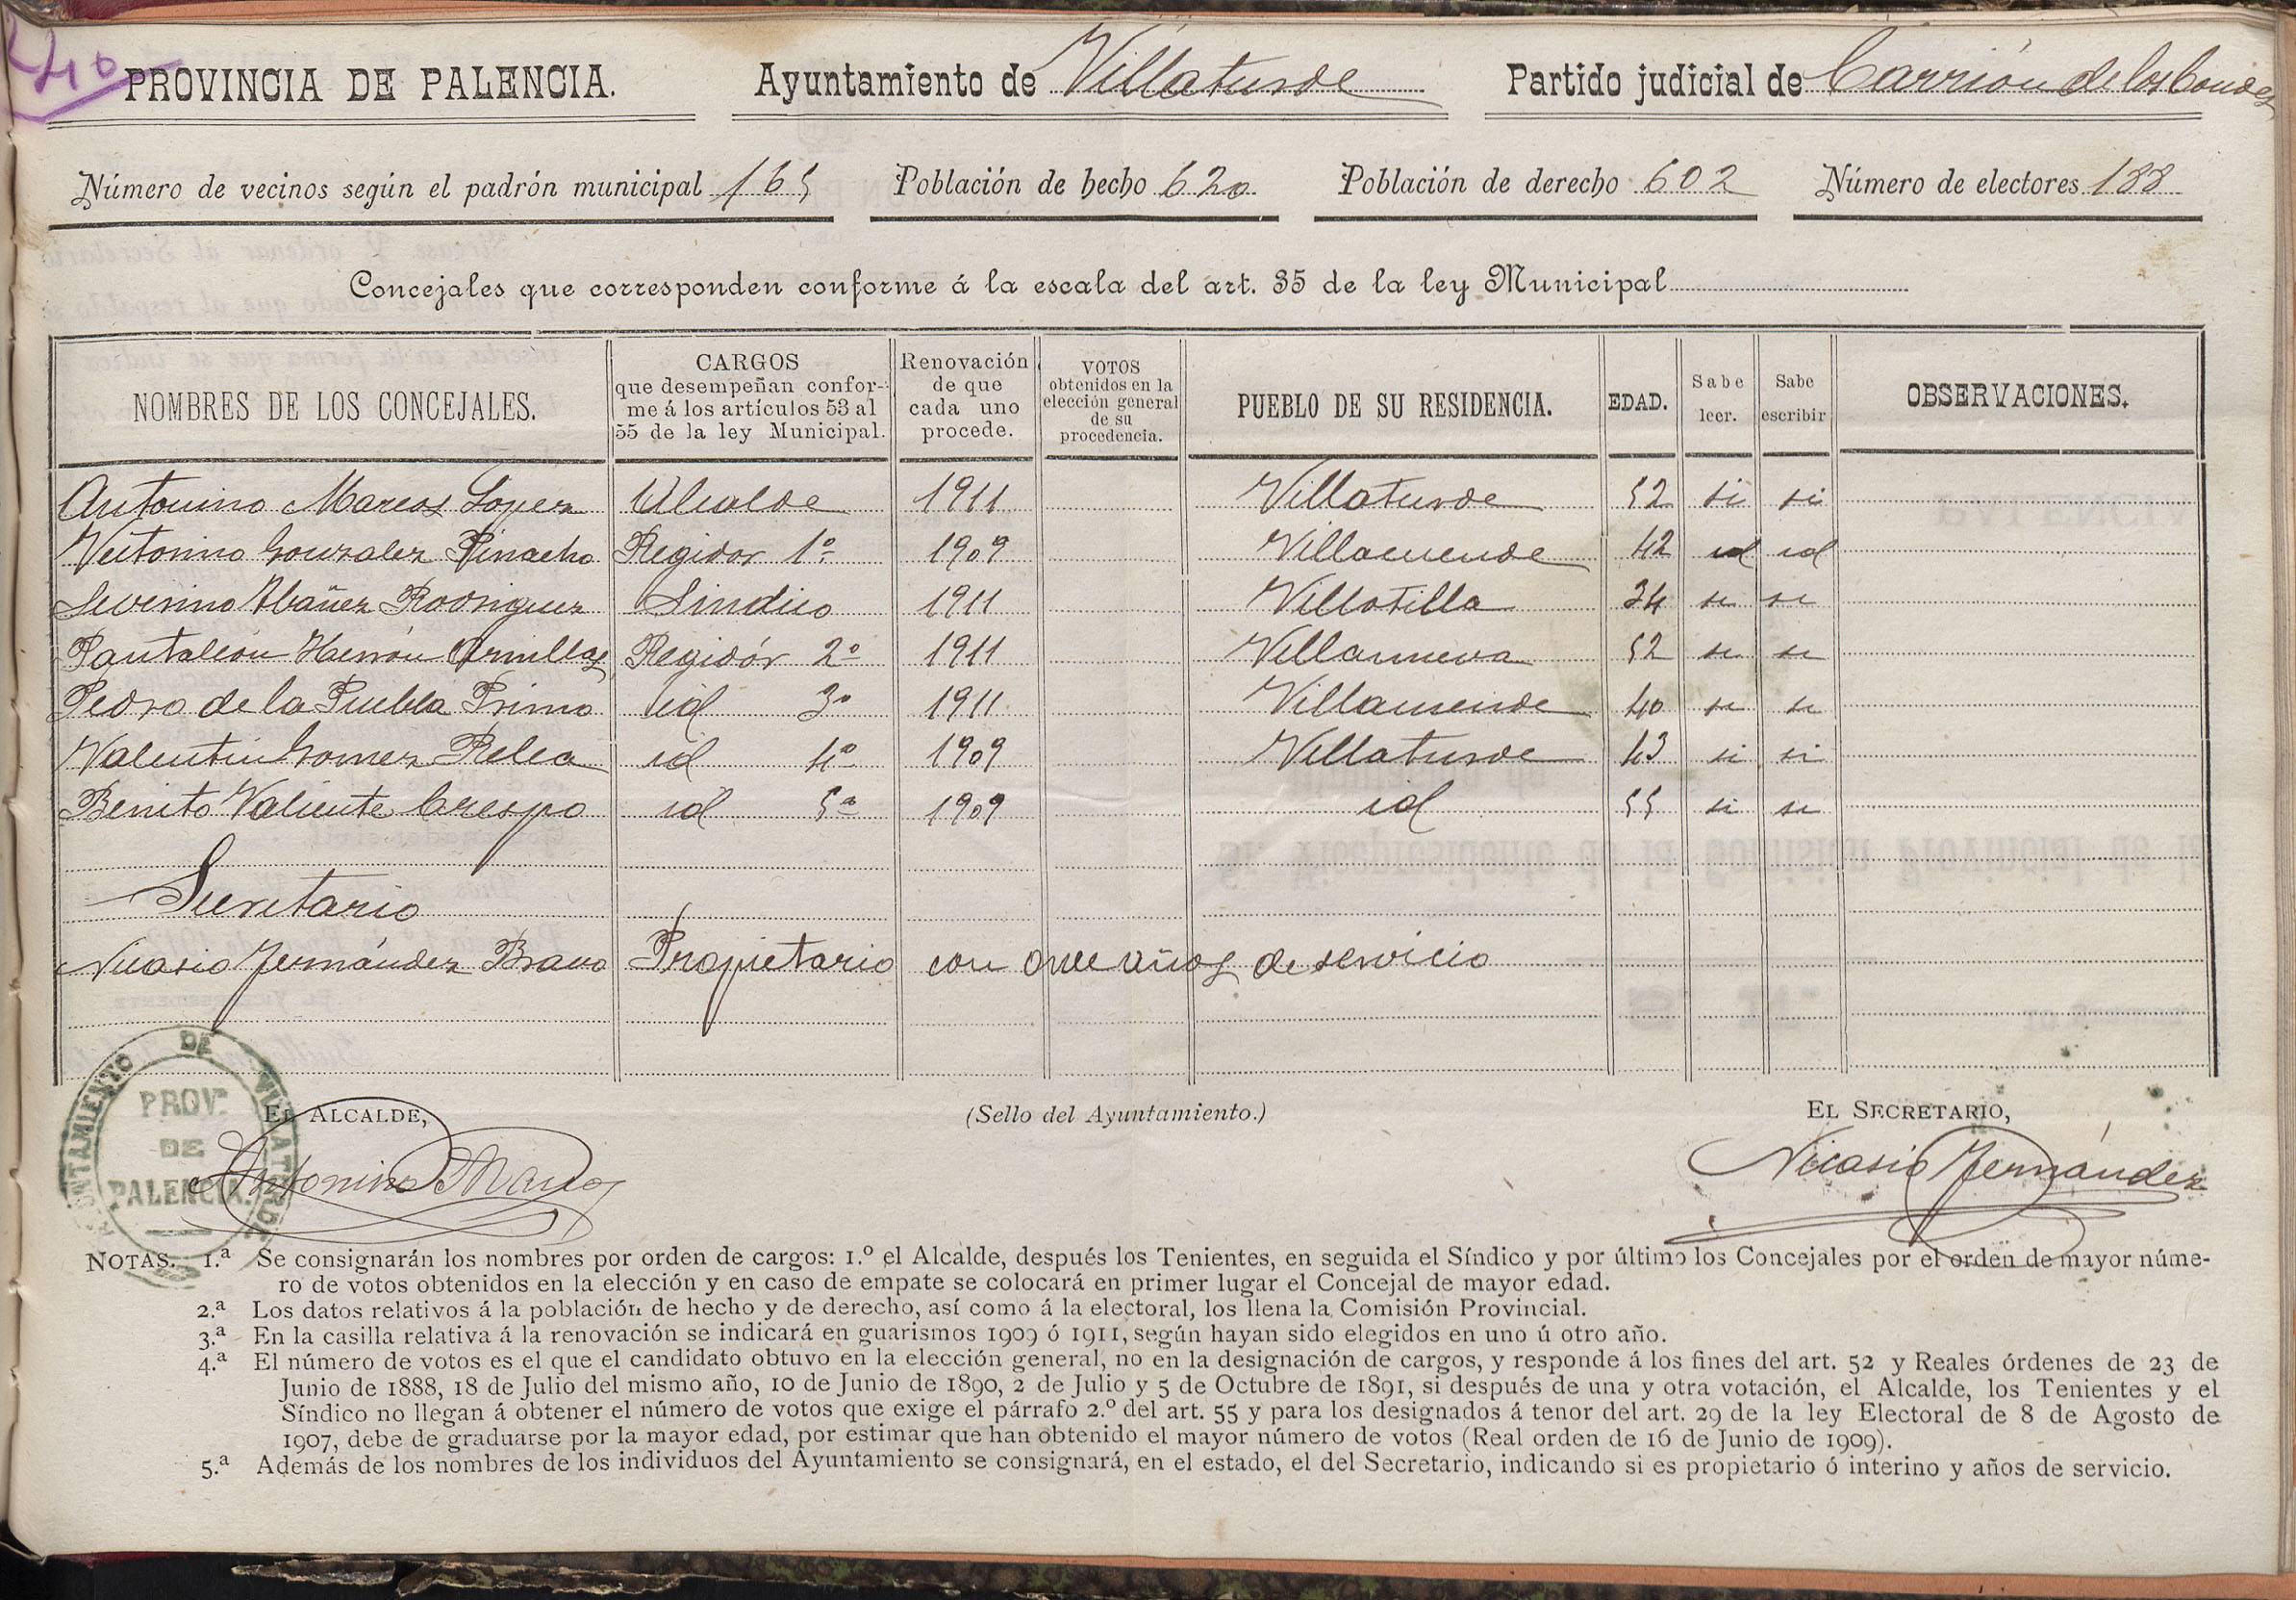 240
PROVINCIA DE PALENCIA. Ayuntamiento de Villaturde Partido judicial de Carrión de los Condes
Número de vecinos según el padrón municipal 165 Población de hecho 620 Población de derecho 602 Número de electores 188
Concejales que corresponden conforme á la escala del art. 35 de la ley Municipal
NOMBRES DE LOS CONCEJALES. CARGOS que desempeñan conforme á los artículos 53 al 55 de la ley Municipal. Renovación de que cada uno procede. VOTOS obtenidos en la elección general de su procedencia. PUEBLO DE SU RESIDENCIA. EDAD. Sabe leer. Sabe escribir OBSERVACIONES.
Antonino Marcos Lopez Alcalde 1911 Villaturde 52 si si
Victorino Gonzalez Pinacho Regidor 1º 1909 Villacuende 42 id id
Severino Ibáñez Rodriguez Sindico 1911 Villotilla 34 si si
Pantaleón Herrón Arnillas Regidór 2º 1911 Villanueva 52 si si
Pedro de la Puebla Primo id 3º 1911 Villacuende 40 si si
Valentin Gomez Relea id 4º 1909 Villaturde 43 si si
Benito Valiente Crespo id 5º 1909 id 55 si si
Secretario
Nicasio Fernández Bravo Propietario con once años de servicio
AYUNTAMIENTO DE VILLATURDE
PROV.ª DE PALENCIA.
EL ALCALDE, (Sello del Ayuntamiento.) EL SECRETARIO,
Antonino Marcos Nicasio Fernández
NOTAS. 1.ª Se consignarán los nombres por orden de cargos: 1.º el Alcalde, después los Tenientes, en seguida el Síndico y por último los Concejales por el orden de mayor núme-
ro de votos obtenidos en la elección y en caso de empate se colocará en primer lugar el Concejal de mayor edad.
2.ª Los datos relativos á la población de hecho y de derecho, así como á la electoral, los llena la Comisión Provincial.
3.ª En la casilla relativa á la renovación se indicará en guarismos 1909 ó 1911, según hayan sido elegidos en uno ú otro año.
4.ª El número de votos es el que el candidato obtuvo en la elección general, no en la designación de cargos, y responde á los fines del art. 52 y Reales órdenes de 23 de
Junio de 1888, 18 de Julio del mismo año, 10 de Junio de 1890, 2 de Julio y 5 de Octubre de 1891, si después de una y otra votación, el Alcalde, los Tenientes y el
Síndico no llegan á obtener el número de votos que exige el párrafo 2.º del art. 55 y para los designados á tenor del art. 29 de la ley Electoral de 8 de Agosto de
1907, debe de graduarse por la mayor edad, por estimar que han obtenido el mayor número de votos (Real orden de 16 de Junio de 1909).
5.ª Además de los nombres de los individuos del Ayuntamiento se consignará, en el estado, el del Secretario, indicando si es propietario ó interino y años de servicio.